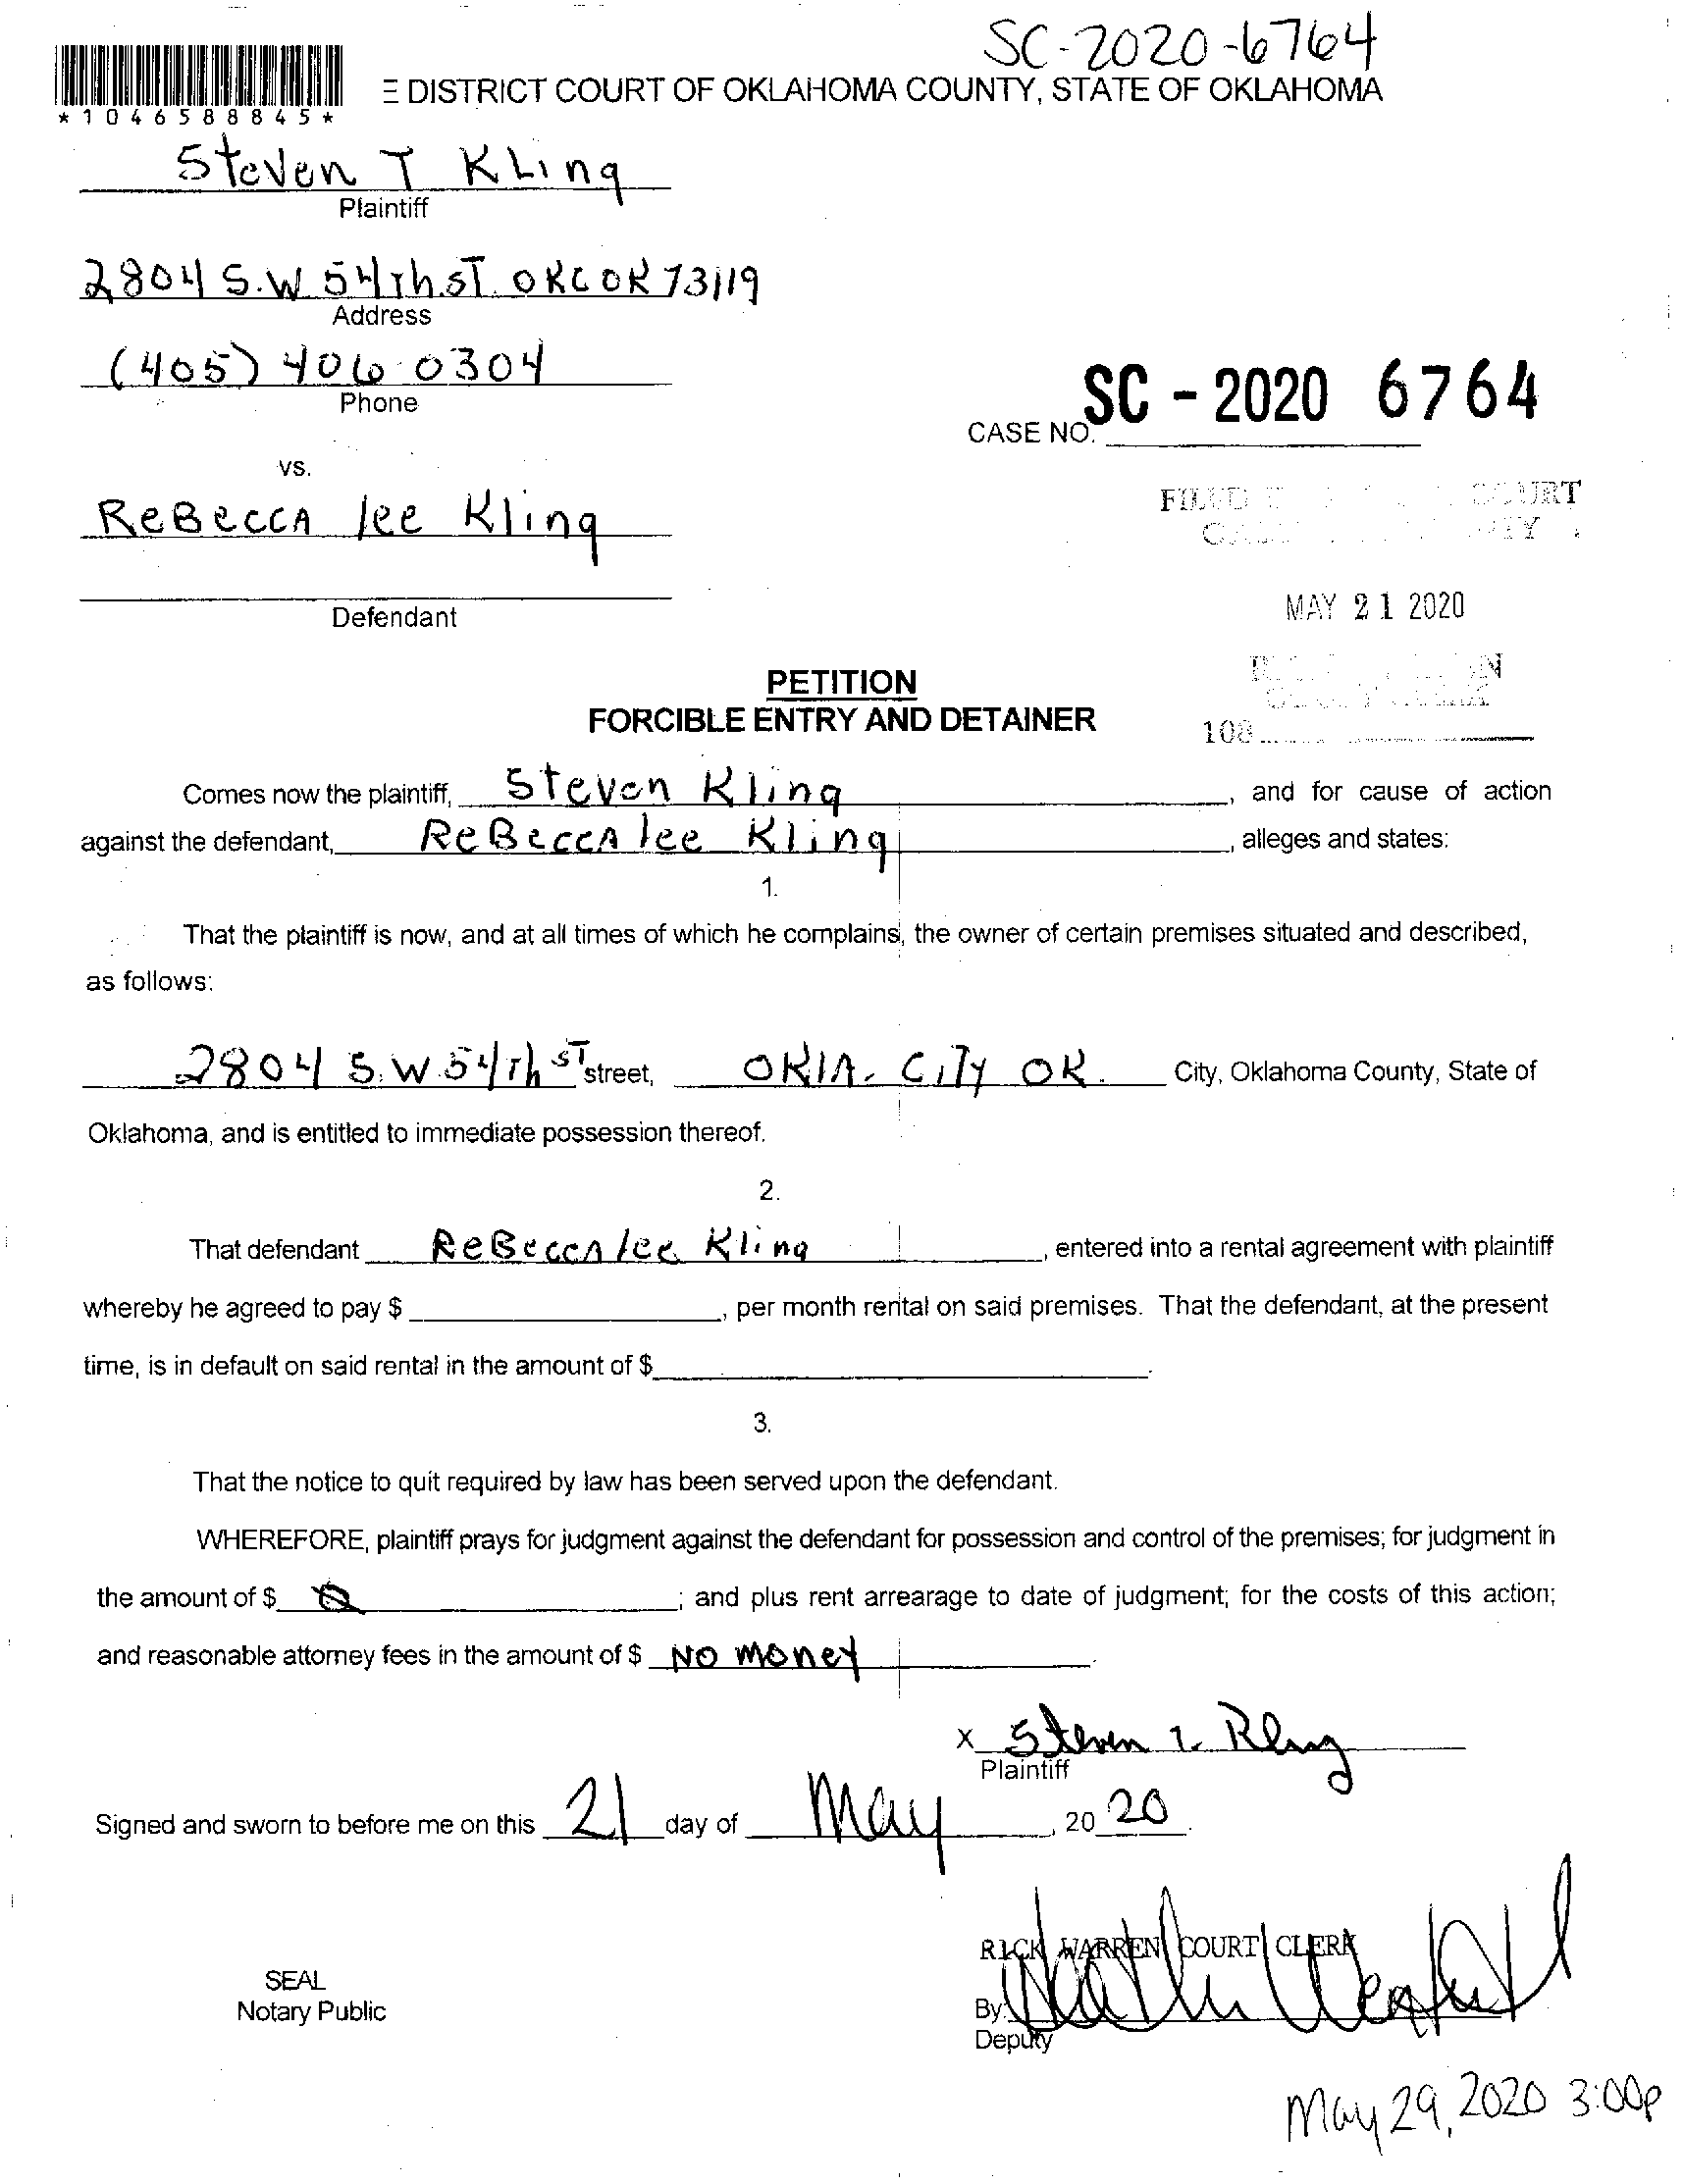 SC-2020-6764
E DISTRICT COURT OF OKLAHOMA COUNTY, STATE OF OKLAHOMA
*1046588845*
Steven T Kling
Plaintiff
2804 S.W 54Th.ST. OKC OK 73119
Address
(405) 406 0304
Phone
SC - 2020 6764
CASE NO.
vs.
ReBeccA lee Kling
Defendant
FILED COURT
MAY 21 2020
PETITION
FORCIBLE ENTRY AND DETAINER
108
Comes now the plaintiff, Steven Kling, and for cause of action
against the defendant, ReBeccA lee Kling, alleges and states:
1.
That the plaintiff is now, and at all times of which he complains, the owner of certain premises situated and described,
as follows:
2804 S.W 54Th ST street, OKlA. CiTy OK. City, Oklahoma County, State of
Oklahoma, and is entitled to immediate possession thereof.
2.
That defendant ReBeccA lee Kling, entered into a rental agreement with plaintiff
whereby he agreed to pay $, per month rental on said premises. That the defendant, at the present
time, is in default on said rental in the amount of $.
3.
That the notice to quit required by law has been served upon the defendant.
WHEREFORE, plaintiff prays for judgment against the defendant for possession and control of the premises; for judgment in
the amount of $ 0; and plus rent arrearage to date of judgment; for the costs of this action;
and reasonable attorney fees in the amount of $ NO money.
x Steven T. Kling
Plaintiff
Signed and sworn to before me on this 21 day of May, 20 20.
RICK WARREN COURT CLERK
SEAL
Notary Public
By:
Deputy
May 29, 2020 3:00p